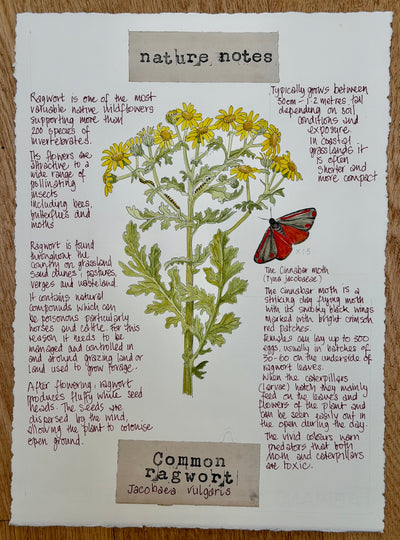 nature notes
Ragwort is one of the most
valuable native wildflowers
supporting more than
200 species of
invertebrates.
Its flowers are
attractive to a
wide range of
pollinating
insects
including bees,
butterflies and
moths
Ragwort is found
throughout the
country on grassland
sand dunes, pastures,
verges and wasteland.
It contains natural
compounds which can
be poisonous particularly
horses and cattle. For this
reason it needs to be
managed and controlled in
and around grazing land or
land used to grow forage.
After flowering, ragwort
produces fluffy white seed
heads. The seeds are
dispersed by the wind,
allowing the plant to colonise
open ground.
Typically grows between
30cm - 1.2 metres tall
depending on soil
conditions and
exposure.
In coastal
grasslands it
is often
shorter and
more compact
x1.5
The Cinnabar moth
(Tyria jacobaeae)
The Cinnabar moth is a
striking day flying moth
with its sooty black wings
marked with bright crimson
red patches.
Females can lay up to 300
eggs, usually in batches of
30-60 on the underside of
ragwort leaves.
When the caterpillars
(larvae) hatch they mainly
feed on the leaves and
flowers of the plant and can
be seen easily out in
the open during the day.
The vivid colours warn
predators that both
moth and caterpillars
are toxic.
Common
ragwort
Jacobaea vulgaris